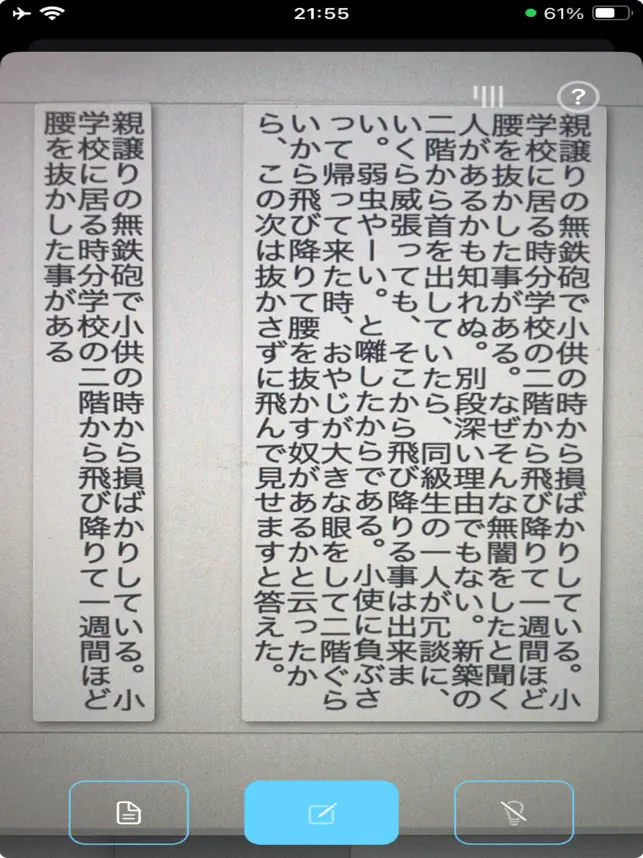 21:55
61%
?
親譲りの無鉄砲で小供の時から損ばかりしている。小
学校に居る時分学校の二階から飛び降りて一週間ほど
腰を抜かした事がある。なぜそんな無闇をしたと聞く
人があるかも知れぬ。別段深い理由でもない。新築の
二階から首を出していたら、同級生の一人が冗談に、
いくら威張っても、そこから飛び降りる事は出来ま
い。弱虫やーい。と囃したからである。小使に負ぶさ
って帰って来た時、おやじが大きな眼をして二階ぐら
いから飛び降りて腰を抜かす奴があるかと云ったか
ら、この次は抜かさずに飛んで見せますと答えた。
親譲りの無鉄砲で小供の時から損ばかりしている。小
学校に居る時分学校の二階から飛び降りて一週間ほど
腰を抜かした事がある